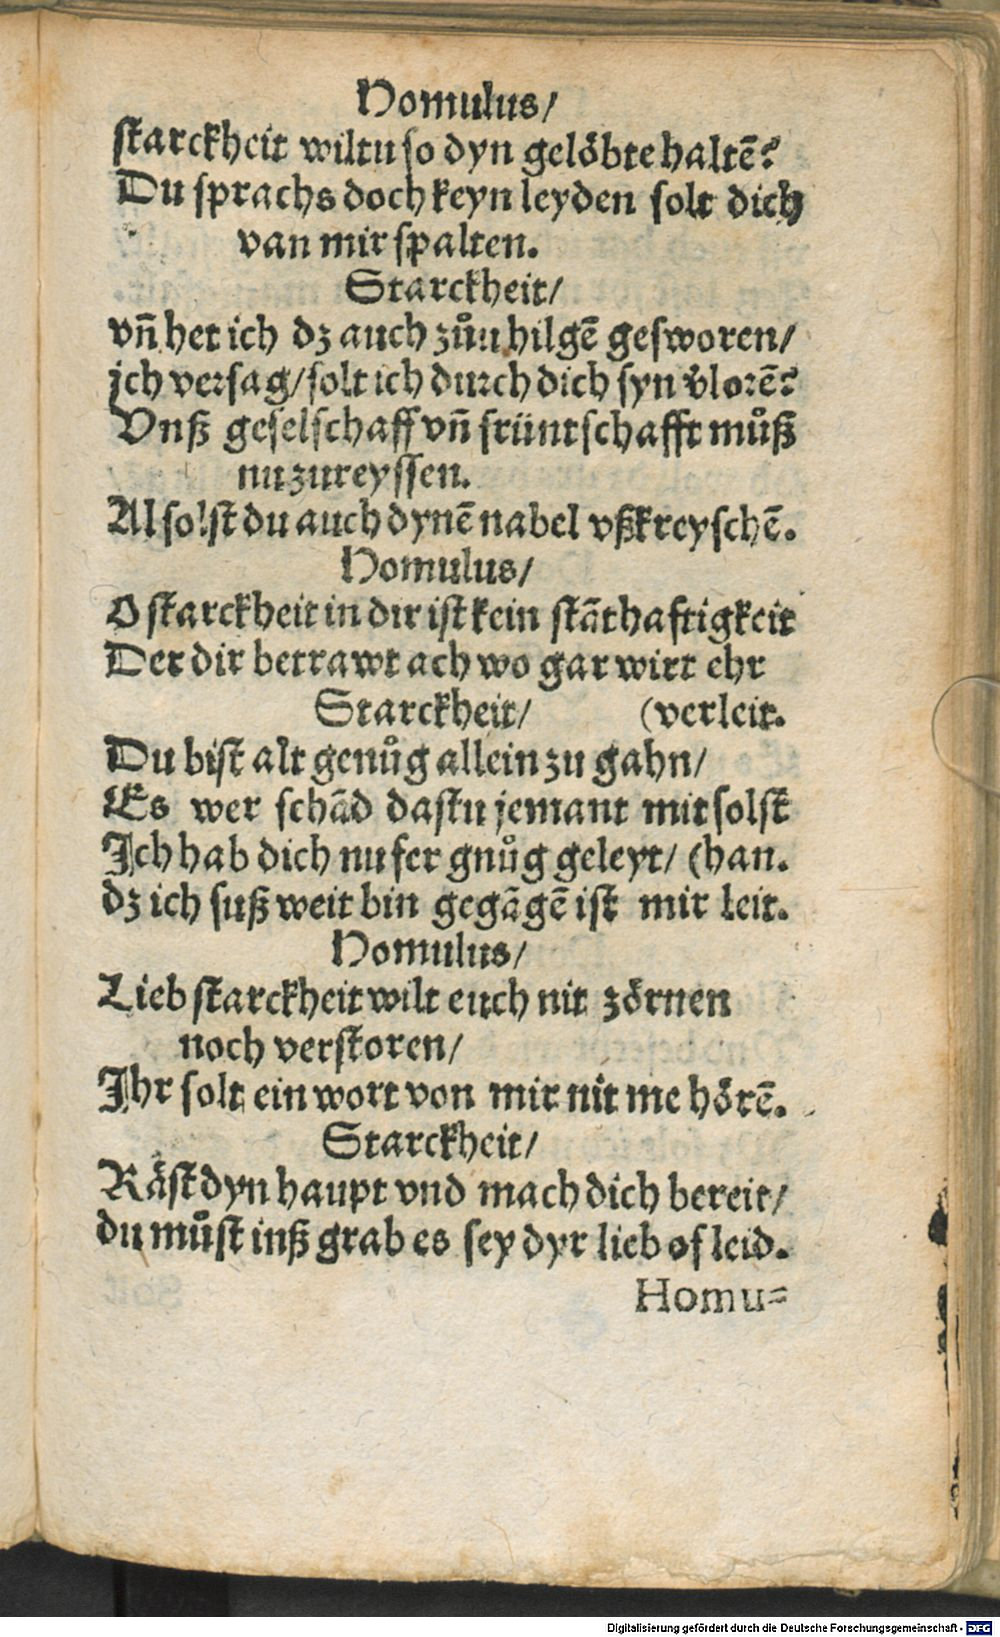 Homulus/
starckheit wiltu so dyn gelöbte haltē?
Du sprachs doch keyn leyden solt dich
van mir spalten.
Starckheit/
vn̄ het ich dz auch zůn hilgē gesworen/
jch versag/ solt ich durch dich syn v̄lorē?
Vnß geselschaff vn̄ früntschafft můß
nu zureyssen.
Al solst du auch dynē nabel vßkreyschē.
Homulus/
O starckheit in dir ist kein stāthaftigkeit
Der dir betrawt ach wo gar wirt ehr
Starckheit/ (verleit.
Du bist alt genůg allein zu gahn/
Es wer schād dastu jemant mit solst
Ich hab dich nu fer gnůg geleyt/ (han.
dz ich suß weit bin gegāgē ist mir leit.
Homulus/
Lieb starckheit wilt euch nit zörnen
noch verstoren/
Ihr solt ein wort von mir nit me hörē.
Starckheit/
Räst dyn haupt vnd mach dich bereit/
du můst inß grab es sey dyr lieb of leid.
Homu=
Digitalisierung gefördert durch die Deutsche Forschungsgemeinschaft - DFG